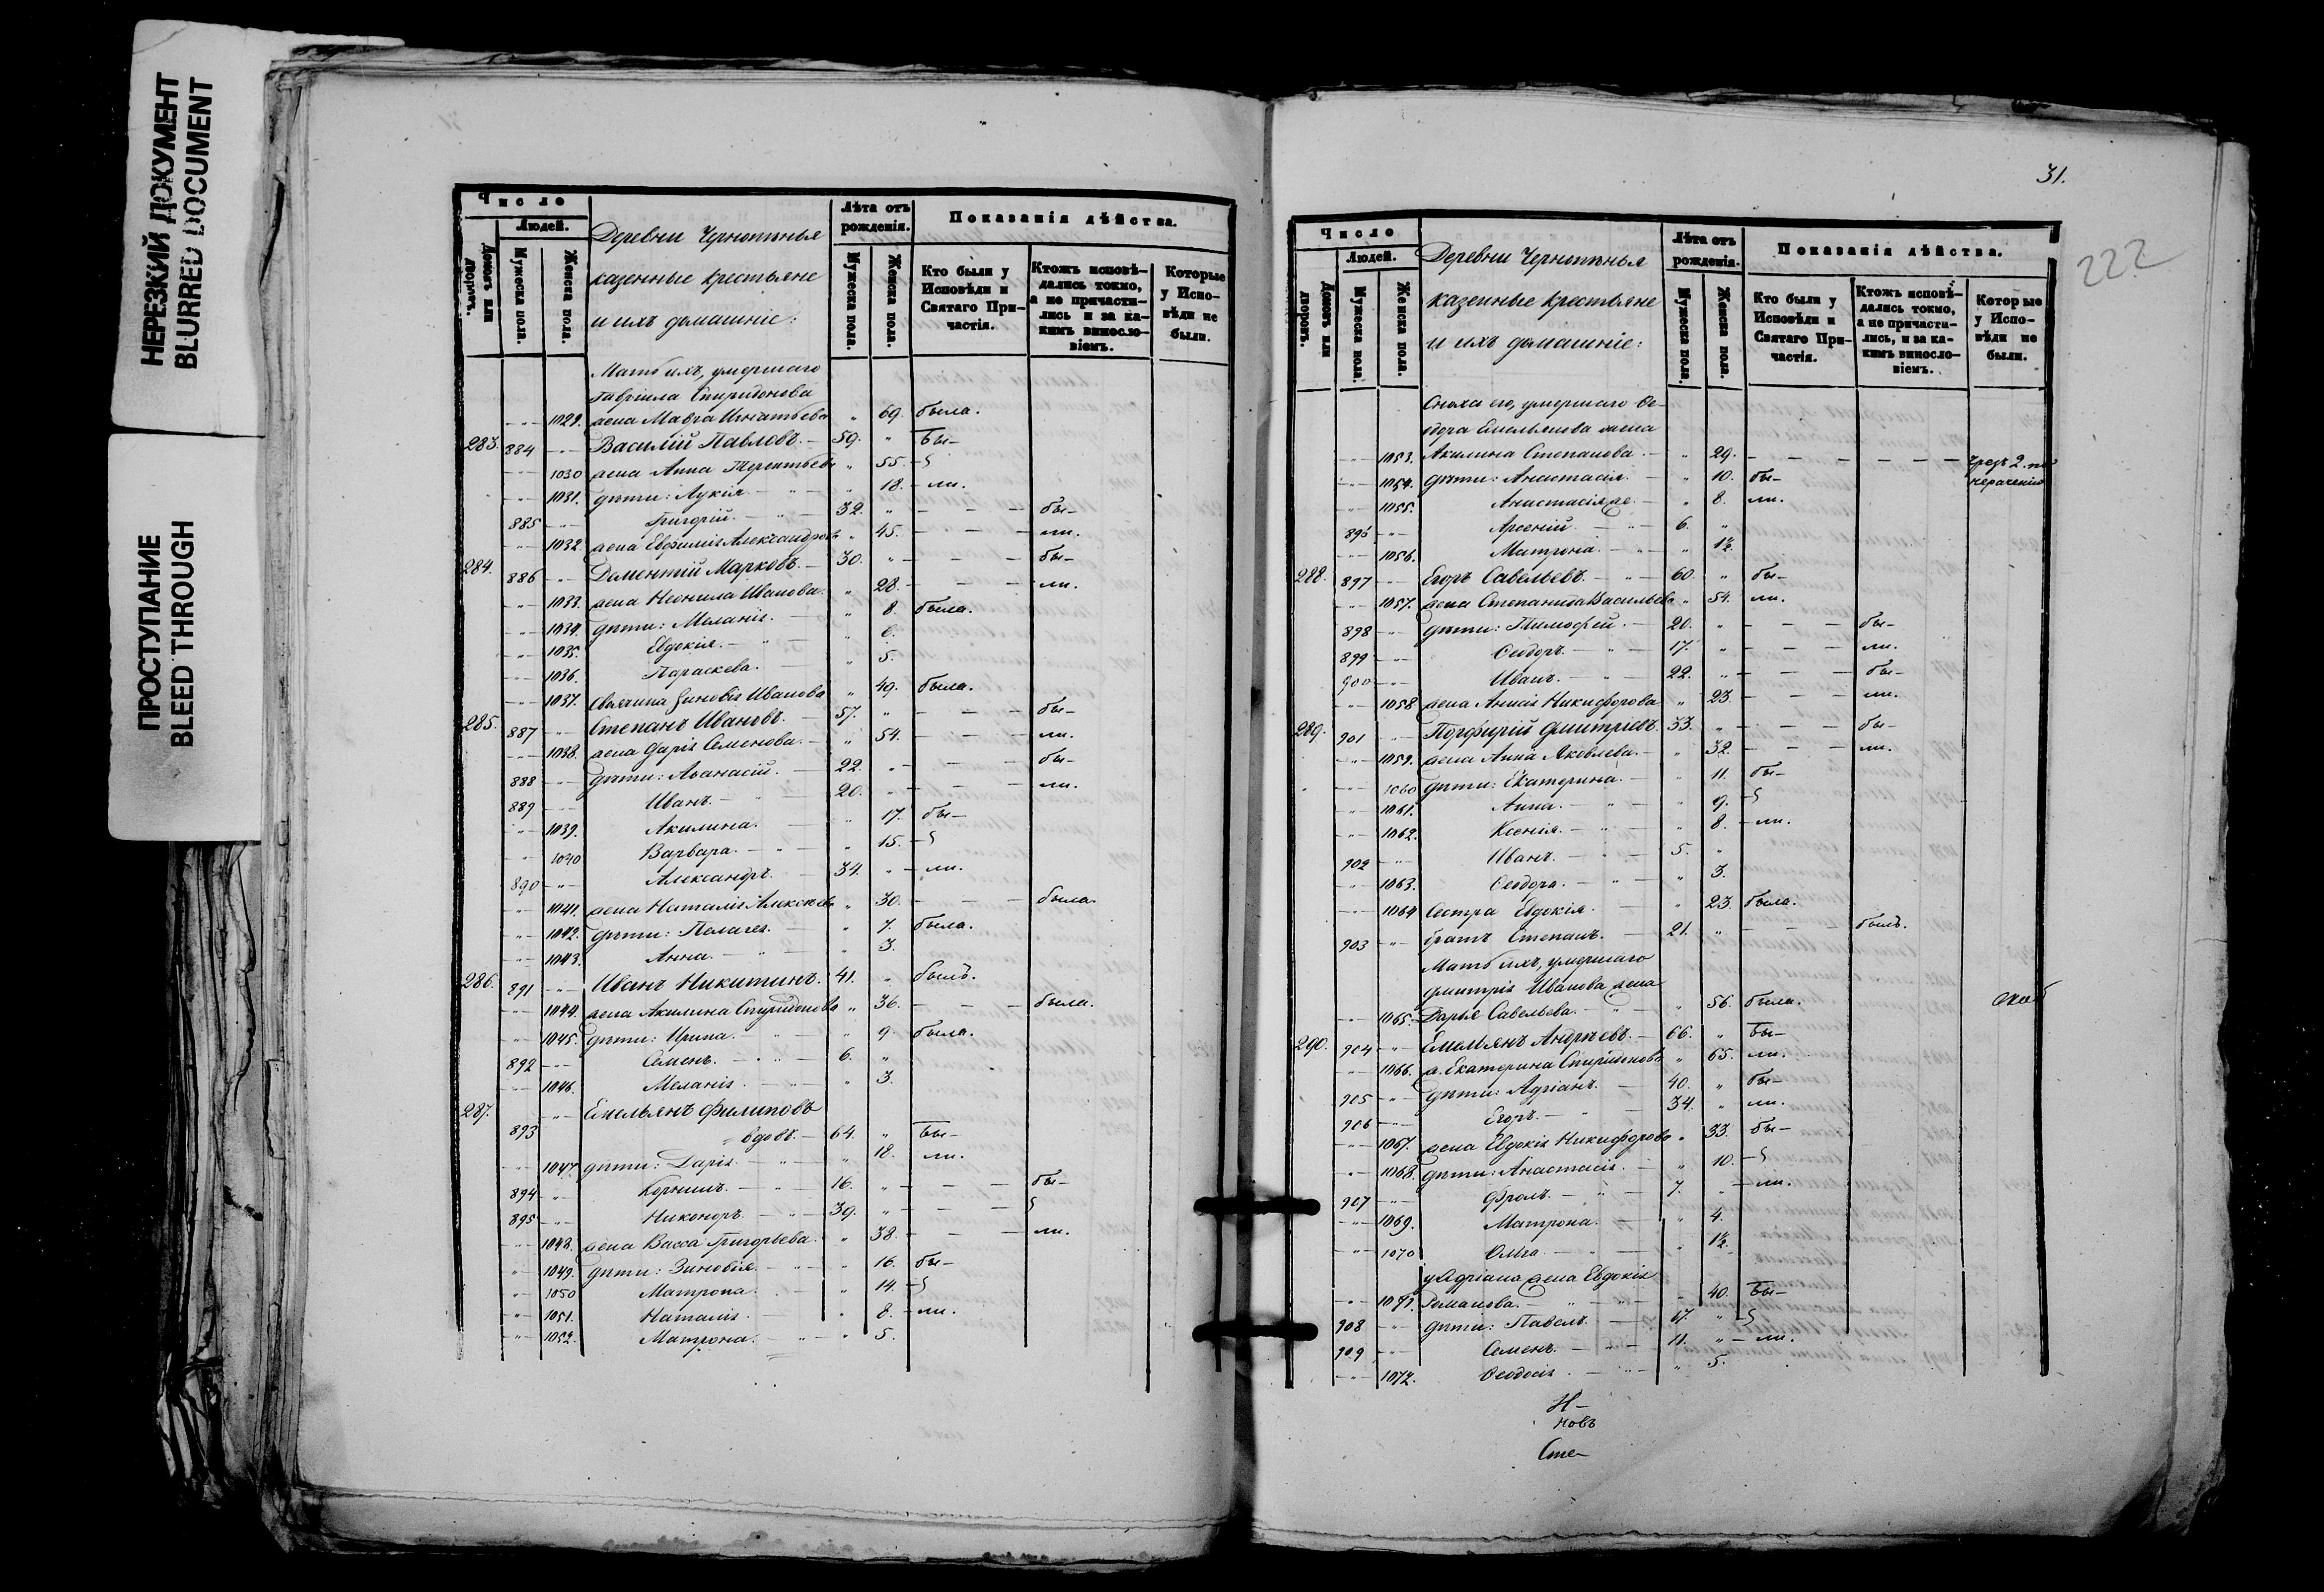 НЕРЕЗКИЙ ДОКУМЕНТ
BLURRED DOCUMENT
ПРОСТУПАНИЕ
BLEED THROUGH
Число
Людей.
Домовъ или дворовъ.
Мужеска пола.
Женска пола.
Деревни
казенные крестьяне
и ихъ домашніе:
Лѣта отъ рожденія.
Мужеска пола.
Женска пола.
Показанія дѣйства.
Кто были у Исповѣди и Святаго Причастія.
Ктожъ исповѣдались токмо, а не причастились и за какимъ винословіемъ.
Которые у Исповѣди не были.
Мать ихъ, умершаго
Гавріила Спиридонова
1029. жена Мавра Игнатьева " 69. была.
283. 884 Василій Павловъ. 59. " Бы-
1030 жена Анна Терентьева " 55.
1031. дѣти: Лукія. " 18. ли.
885 Григорій. 32. " бы-
1032 жена Евфимія Александрова " 45. ли.
284. 886 Даментій Марковъ. 30. " бы-
1033. жена Неонила Иванова. " 28. ли.
1034. дѣти: Меланія. " 8. была.
1035. Евдокія. " 6.
1036. Параскева. " 5.
1037. Зиновія Иванова " 49. была.
285. 887 Степанъ Ивановъ. 57. " бы-
1038. жена Дарія Семенова. " 54. ли.
888 дѣти: Аѳанасій. 22. " бы-
889 Иванъ. 20. " ли.
1039. Акилина. " 17. бы-
1040 Варвара. " 15.
890 Александръ. 34. " ли.
1041. жена Наталія Алексѣева " 30. была.
1042. дѣти: Пелагея. " 7. была.
1043. Анна. " 3.
286. 891 Иванъ Никитинъ. 41. " былъ.
1044. жена Акилина Спиридонова " 36. была.
1045. дѣти: Ирина. " 9. была.
892 Семенъ. 6. "
1046. Меланія. " 3.
287. Емельянъ Филиповъ
893 вдовъ. 64. " Бы-
1047. дѣти: Дарія. " 18. ли.
894 Корнилъ. 16. " бы-
895 Никоноръ. 39. "
1048. жена Васса Григорьева. " 38. ли.
1049. дѣти: Зиновія. " 16. бы-
1050 Матрона. " 14.
1051. Наталія. " 8. ли.
1052. Матрона. " 5.
31.
222
Число
Людей.
Домовъ или дворовъ.
Мужеска пола.
Женска пола.
Деревни
казенные крестьяне
и ихъ домашніе:
Лѣта отъ рожденія.
Мужеска пола.
Женска пола.
Показанія дѣйства.
Кто были у Исповѣди и Святаго Причастія.
Ктожъ исповѣдались токмо, а не причастились, и за какимъ винословіемъ.
Которые у Исповѣди не были.
Сноха его, умершаго Ѳе-
одора Емельянова жена
1053. Акилина Степанова. " 29. чрезъ 2. по нераченію
1054. дѣти: Анастасія. " 10. бы-
1055. Анастасія же. " 8. ли.
896 Арсеній. 6. "
1056. Матрона. " 1½.
288. 897 Егоръ Савельевъ. 60. " бы-
1057. жена Степанида Васильева " 54. ли.
898 дѣти: Тимофей. 20. " бы-
899 Ѳеодоръ. 17. " ли.
900 Иванъ. 22. " бы-
1058 жена Анисія Никифорова " 23. ли.
289. 901 Порфирій Дмитріевъ. 33. " бы-
1059. жена Анна Яковлева. " 32. ли.
1060 дѣти: Екатерина. " 11. бы-
1061. Анна. " 9.
1062. Ксенія. " 8. ли.
902 Иванъ. 5. "
1063. Ѳеодора. " 3.
1064 Сестра Евдокія. " 23. была.
903 братъ Степанъ. 21. " былъ.
Мать ихъ, умершаго
Дмитрія Иванова жена
1065. Дарья Савельева. " 56. была.
290. 904 Емельянъ Андреевъ. 66. " Бы-
1066. ж. Екатерина Спиридонова " 65. ли.
905 дѣти: Адріанъ. 40. " бы-
906 Егоръ. 34. " ли.
1067. жена Евдокія Никифорова " 33. бы-
1068. дѣти: Анастасія. " 10.
907 Фролъ. 7. " ли.
1069. Матрона. " 4.
1070 Ольга. " 1½.
у Адріана жена Евдокія
1071. Романова. " 40. Бы-
908 дѣти: Павелъ. 17. "
909 Семенъ. 11. " ли.
1072. Ѳеодосія. " 5.
Н-
новъ
Сте-